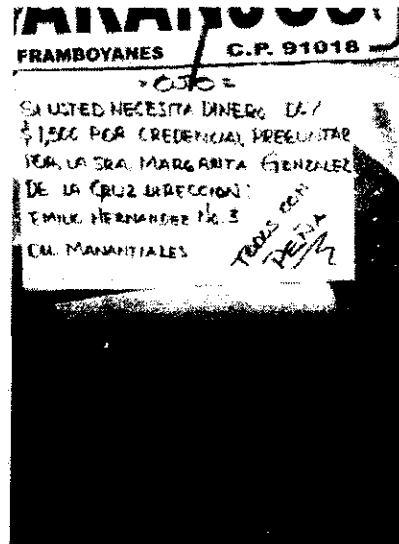 ARANJOS
FRAMBOYANES C.P. 91018
= OJO =
SI USTED NECESITA DINERO DE/
$1,500 POR CREDENCIAL PREGUNTAR
POR LA SRA. MARGARITA GONZALEZ
DE LA CRUZ DIRECCION:
EMILIO HERNANDEZ No. 3
COL. MANANTIALES
TODOS CON
PEÑA